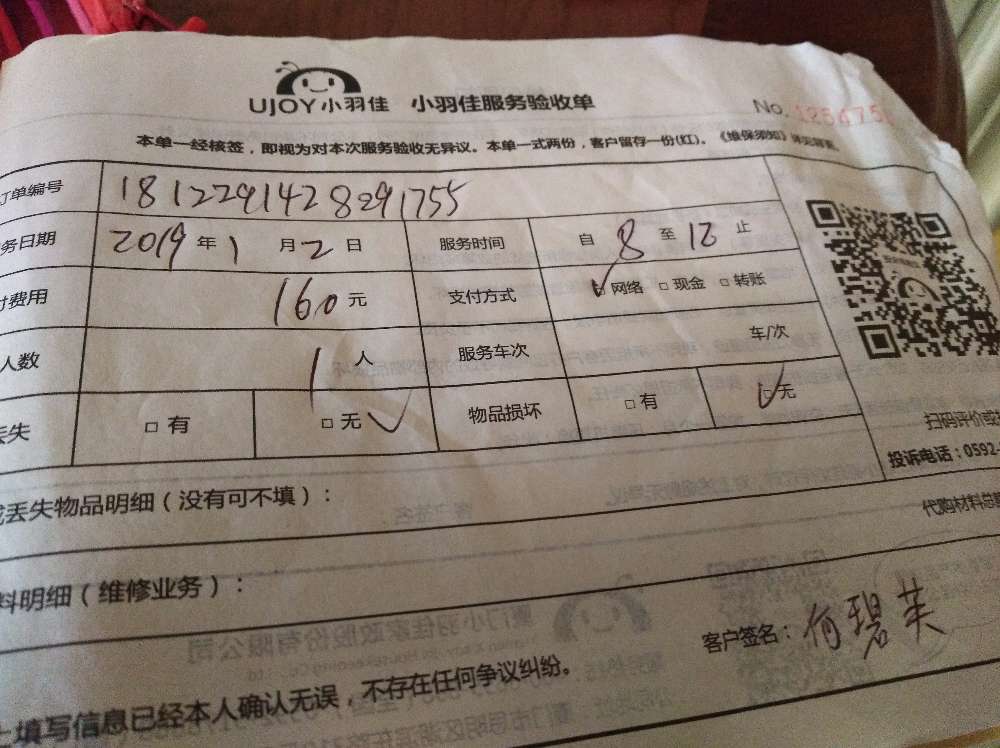 UJOY小羽佳 小羽佳服务验收单
No. 125475
本单一经核签，即视为对本次服务验收无异议。本单一式两份，客户留存一份(红)。《维保须知》详见背面。
订单编号 1812291428291755
务日期 2019年1月2日 服务时间 自8至12止
付费用 160元 支付方式 ☑网络 □现金 □转账
人数 1人 服务车次 车/次
丢失 □有 □无✓ 物品损坏 □有 ☑无
扫码评价或
投诉电话：0592-
或丢失物品明细（没有可不填）：
代购材料总
料明细（维修业务）：
客户签名：何碧英
上填写信息已经本人确认无误，不存在任何争议纠纷。